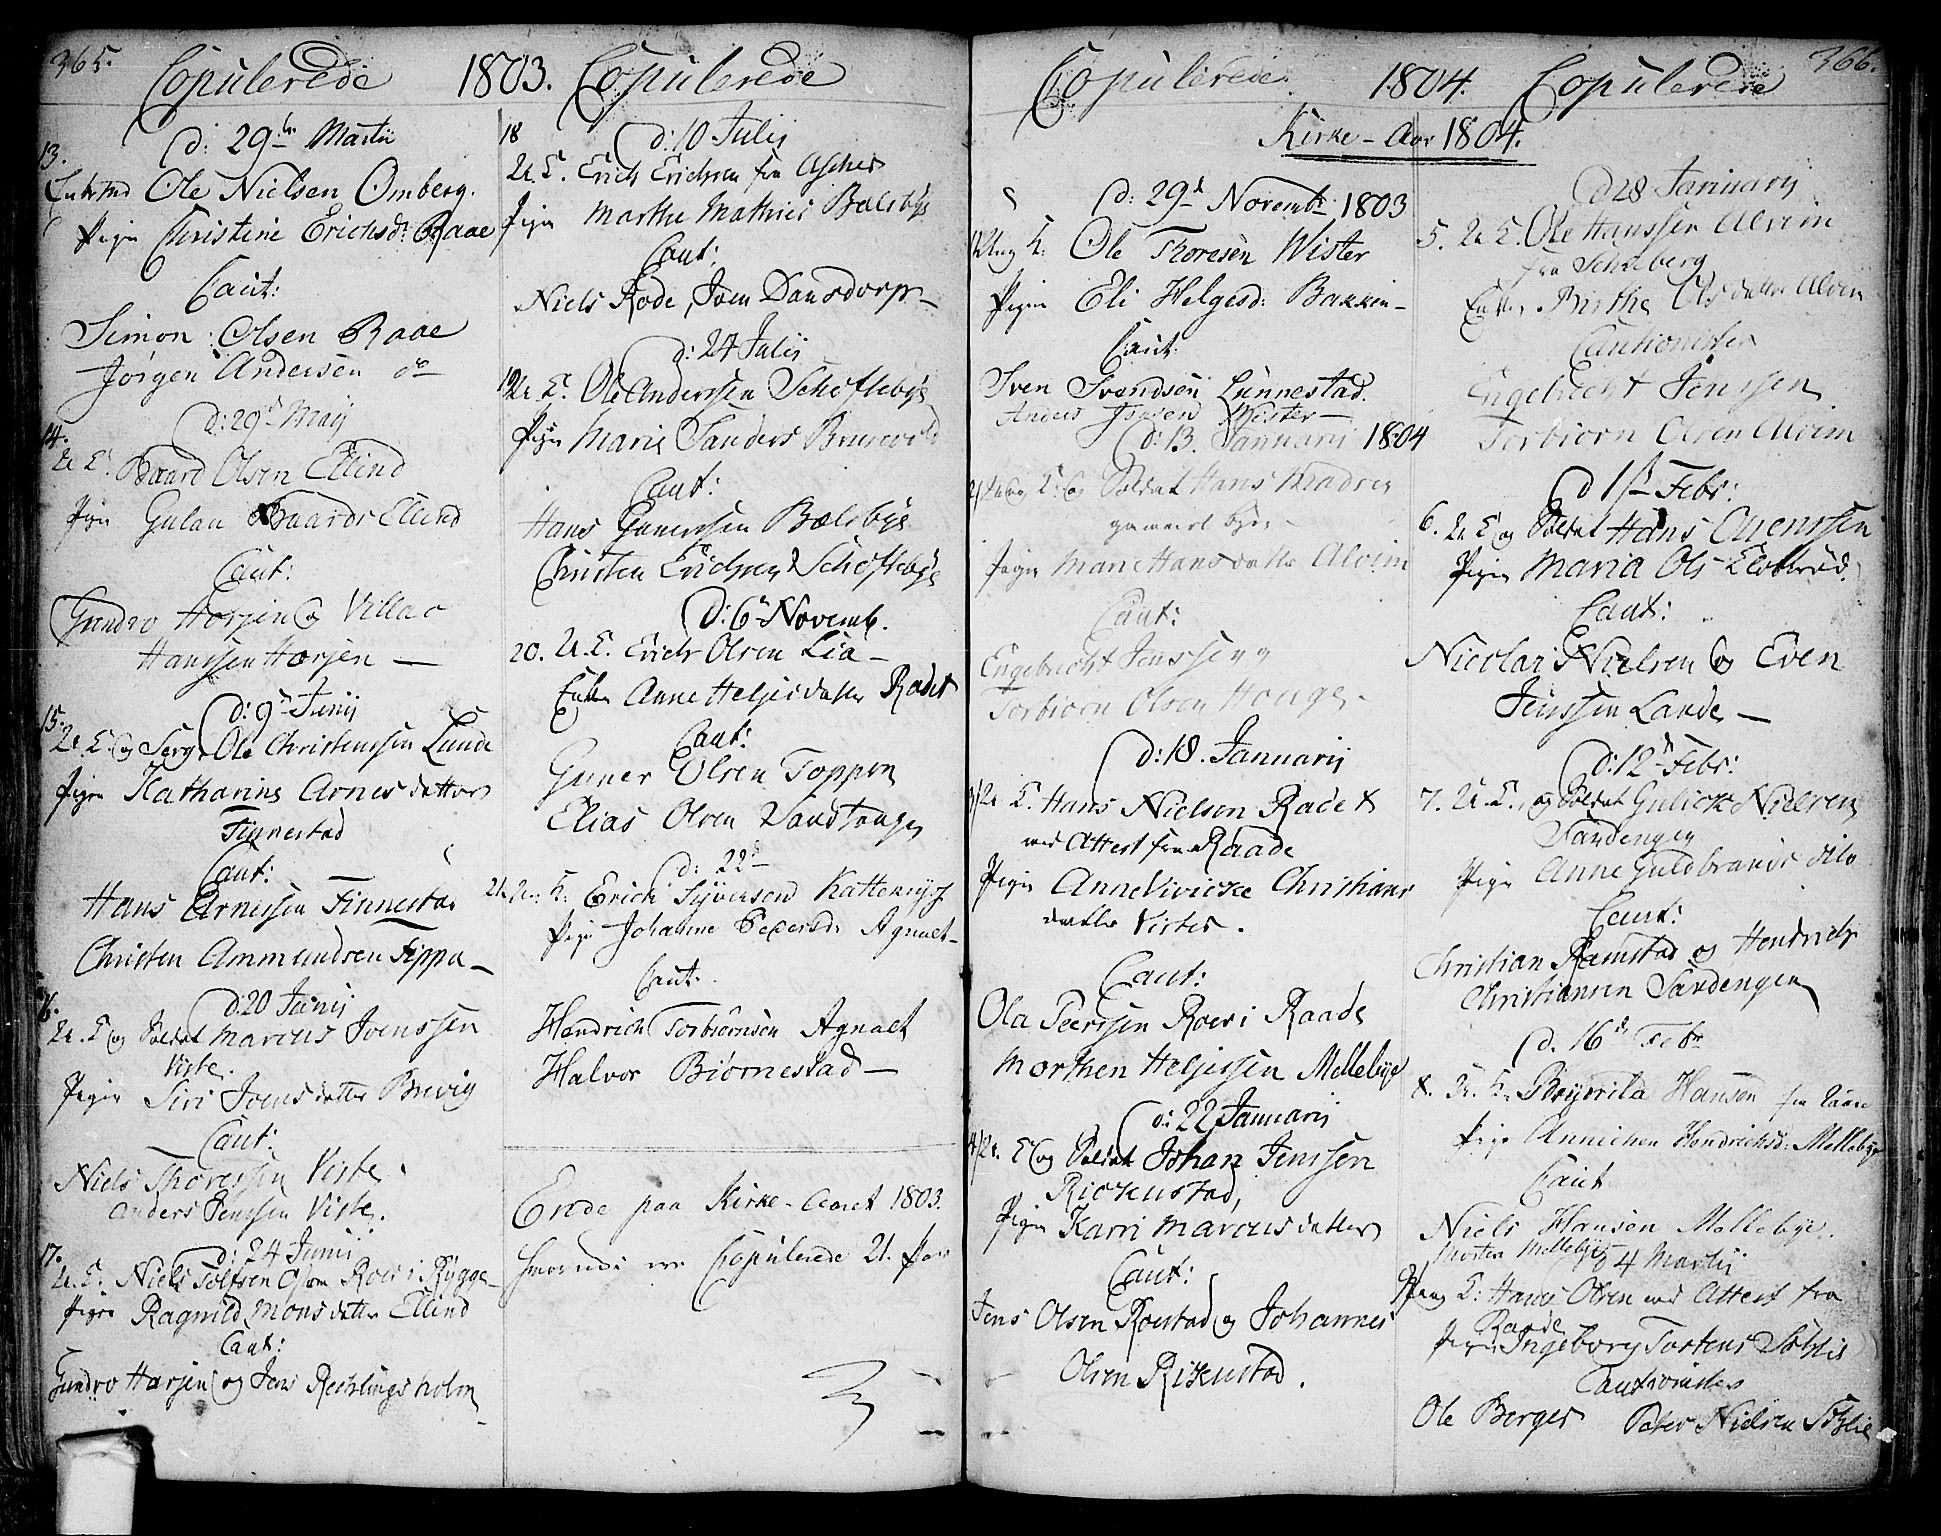 365.
Copulerede 1803. Copulerede
d: 29de Martii
13.
Ole Nielsen Omberg.
Pigen Christine Erichsd: Raae
Caut:
Simon Olsen Raae
Jørgen Andersen do
d: 29de Maij
14.
U. C. Baard Olsen Ellind
Pigen Gulau Baards Ellind
Caut:
Gundro Horjen og Villa
Hanssen Horjen —
d: 9de Junij
15.
U. C. og Serg. Ole Christenssen Lunde
Pigen Katharina Arnesdatter
Finnestad
Caut:
Hans Arnessen Finnestad
Christen Ammundsen Fippa —
d: 20 Junij
16.
U. C. og Soldat Marcus Joenssen
Viste.
Pigen Siri Joensdatter Brevig
Caut:
Niels Thoressen Viste
Anders Jenssen Viste.
d: 24 Junii
17.
U. C. Niels Tolfsen Roer i Rygge
Pigen Ragnild Monsdatter Ellind
Caut:
Gundro Horjen og Jens Rechlingsholm
18
d: 10 Julij
U. C. Erich Erichsen fra Ascher
Pigen Marthe Mathies Bælsbye
Caut:
Niels Rode, Joen Dansdorph
d: 24 Julij
19 U. C. Ole Anderssen Schoftebye
Pigen Marie Sanders Brunvold
Caut:
Hans Gunerssen Bælsbye
Christen Erichsen Schoftebye
d: 6te Novemb.
20. U. C. Erich Olsen Lia —
Enken Anne Heljesdatter Radet
Caut:
Guner Olsen Toppen
Elias Olsen Sandtangen
d: 22de
21. U. K. Erich Syversend Kattenrygg
Pige Johanne Pedersd: Agnalt
Caut:
Hendrich Torbiørnsen Agnalt
Halvor Biørnestad —
Ende paa Kirke-Aaret 1803.
Copulerede 21. Par
366.
Copulerede. 1804. Copulerede
Kirke-Aar 1804.
d: 29de Novembr. 1803
1 Ung K. Ole Thoresen Wister
Pigen Eli Helgesd: Bakken
Caut:
Sven Svendsen Lunnestad.
Anders Wister —
d: 13. Jannuarii 1804
2 U. C. og Soldat Hans Madsen
Pigen Marie Hansdatter Alvim
Caut:
Engebrecht Jenssen
Torbiørn Olsen Houge
d: 18. Januarij
3 U. C. Hans Nielsen Radet
med Attest fra Raade
Pigen Anne Vivicke Christians
datter Vister.
Caut:
Ola Peerssen Roer i Raade
Morthen Heljessen Mellebye
d: 22 Januarij
4 U. C. og Soldat Johan Jenssen
Rickustad,
Pigen Karri Marcusdatter
Caut:
Jens Olsen Roestad og Johannes
Olsen Rikustad.
d 28 Januarij
5. U. C. Ole Hanssen Alvim
fra Schieberg
Enken Birthe Olsdatter Alvim
Cautionister
Engebrecht Jenssen
Torbiørn Olsen Alvim
d 1ste Febr:
6. U. C. og Soldat Hans Evenssen
Pigen Maria Ols
Caut:
Nicolai Nielsen og Even
Jenssen Lande —
d: 12te Febr:
7. U. C. og Soldat Gulick Nielsen
Sandengen
Pigen Anne Guldbrands dito
Caut:
Christian Ramstad og Hendrich
Christiansen Sandengen
d. 16de Febr
8. U. K. Brynnild Hansen fra Raade
Pige Annichen Hendrichsd: Mellebye
Caut
Niels Hansen Mellebye.
Morten Mellebye
d 4 Martij
9 Ung C: Hans Olsen med Attest fra
Raade
Pigen Ingeborg Tostens Soxlie
Cautionister
Ole Berger Peter Nielsen Soxlie